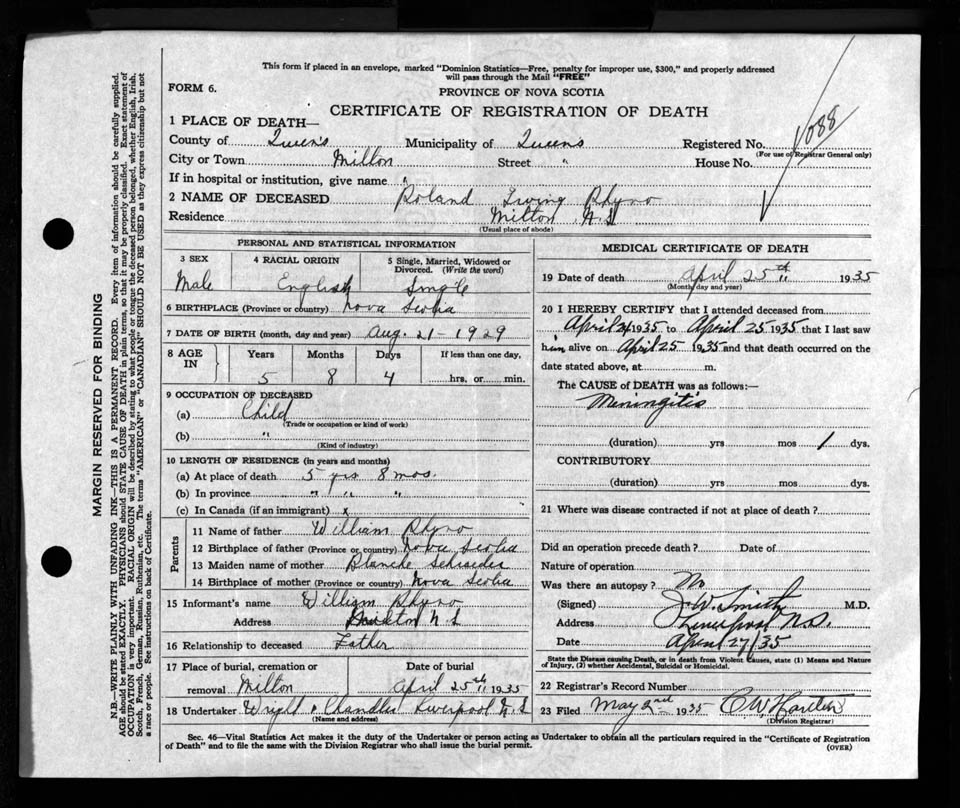 This form if placed in an envelope, marked "Dominion Statistics—Free, penalty for improper use, $300," and properly addressed
will pass through the Mail "FREE"
FORM 6.
PROVINCE OF NOVA SCOTIA
CERTIFICATE OF REGISTRATION OF DEATH
1088
1 PLACE OF DEATH—
County of Queen's Municipality of Queens Registered No.
(For use of Registrar General only)
City or Town Milton Street " House No.
If in hospital or institution, give name "
2 NAME OF DECEASED Roland Irving Rhyno
Residence Milton N.S
(Usual place of abode)
PERSONAL AND STATISTICAL INFORMATION
3 SEX 4 RACIAL ORIGIN 5 Single, Married, Widowed or
Divorced. (Write the word)
Male English Single
6 BIRTHPLACE (Province or country) Nova Scotia
7 DATE OF BIRTH (month, day and year) Aug. 21-1929
8 AGE IN Years Months Days If less than one day,
5 8 4 hrs. or min.
9 OCCUPATION OF DECEASED
(a) Child
(Trade or occupation or kind of work)
(b) "
(Kind of industry)
10 LENGTH OF RESIDENCE (in years and months)
(a) At place of death 5 yrs 8 mos.
(b) In province " " "
(c) In Canada (if an immigrant) x
Parents
11 Name of father William Rhyno
12 Birthplace of father (Province or country) Nova Scotia
13 Maiden name of mother Blanche
14 Birthplace of mother (Province or country) Nova Scotia
15 Informant's name William Rhyno
Address Milton N S
16 Relationship to deceased Father
17 Place of burial, cremation or Date of burial
removal Milton April 25th 1935
18 Undertaker Wright & Chandler Liverpool N.S
(Name and address)
MEDICAL CERTIFICATE OF DEATH
19 Date of death April 25th 1935
(Month, day and year)
20 I HEREBY CERTIFY that I attended deceased from
April 1935 to April 25 1935 that I last saw
him alive on April 25 1935 and that death occurred on the
date stated above, at m.
The CAUSE of DEATH was as follows:—
Meningitis
(duration) yrs mos 1 dys.
CONTRIBUTORY
(duration) yrs mos dys.
21 Where was disease contracted if not at place of death?
Did an operation precede death? Date of
Nature of operation
Was there an autopsy? No
(Signed) J.W. Smith M.D.
Address Liverpool N.S.
Date April 27/35
State the Disease causing Death, or in death from Violent Causes, state (1) Means and Nature
of Injury, (2) whether Accidental, Suicidal or Homicidal.
22 Registrar's Record Number
23 Filed May 2nd 1935 C W
(Division Registrar)
Sec. 46—Vital Statistics Act makes it the duty of the Undertaker or person acting as Undertaker to obtain all the particulars required in the "Certificate of Registration
of Death" and to file the same with the Division Registrar who shall issue the burial permit.
(OVER)
MARGIN RESERVED FOR BINDING
N.B.—WRITE PLAINLY WITH UNFADING INK—THIS IS A PERMANENT RECORD. Every item of information should be carefully supplied.
AGE should be stated EXACTLY. PHYSICIANS should STATE CAUSE OF DEATH in plain terms, so that it may be properly classified. Exact statement of
OCCUPATION is very important. RACIAL ORIGIN will be described by stating to what people or tongue the deceased person belonged, whether English, Irish,
Scotch, French, German, Russian, Ruthenian, etc. The terms "AMERICAN" or "CANADIAN" SHOULD NOT BE USED as they express citizenship but not
a race or people. See instructions on back of Certificate.